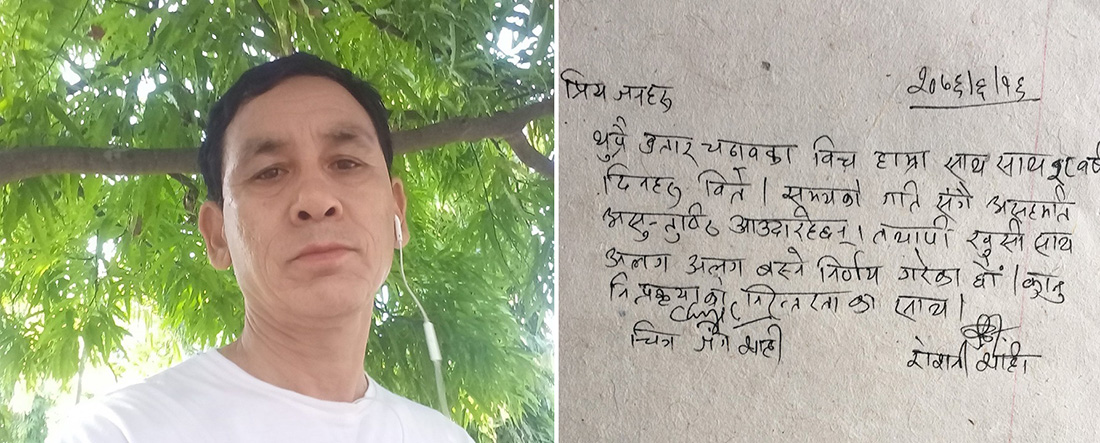 प्रिय जनहरु
२०७६/६/१६
थुप्रै उतार चढावका विच हाम्रा साथ साथ वर्ष
दिनहरु विते । समयको गति संगै असहमति
असन्तुष्टि आउदारहेछन् । तथापी खुसी साथ
अलग अलग बस्ने निर्णय गरेका छौं । कानुनी
प्रकृयाको निरन्तरताका साथ ।
चित्र जंग शाही
शाही